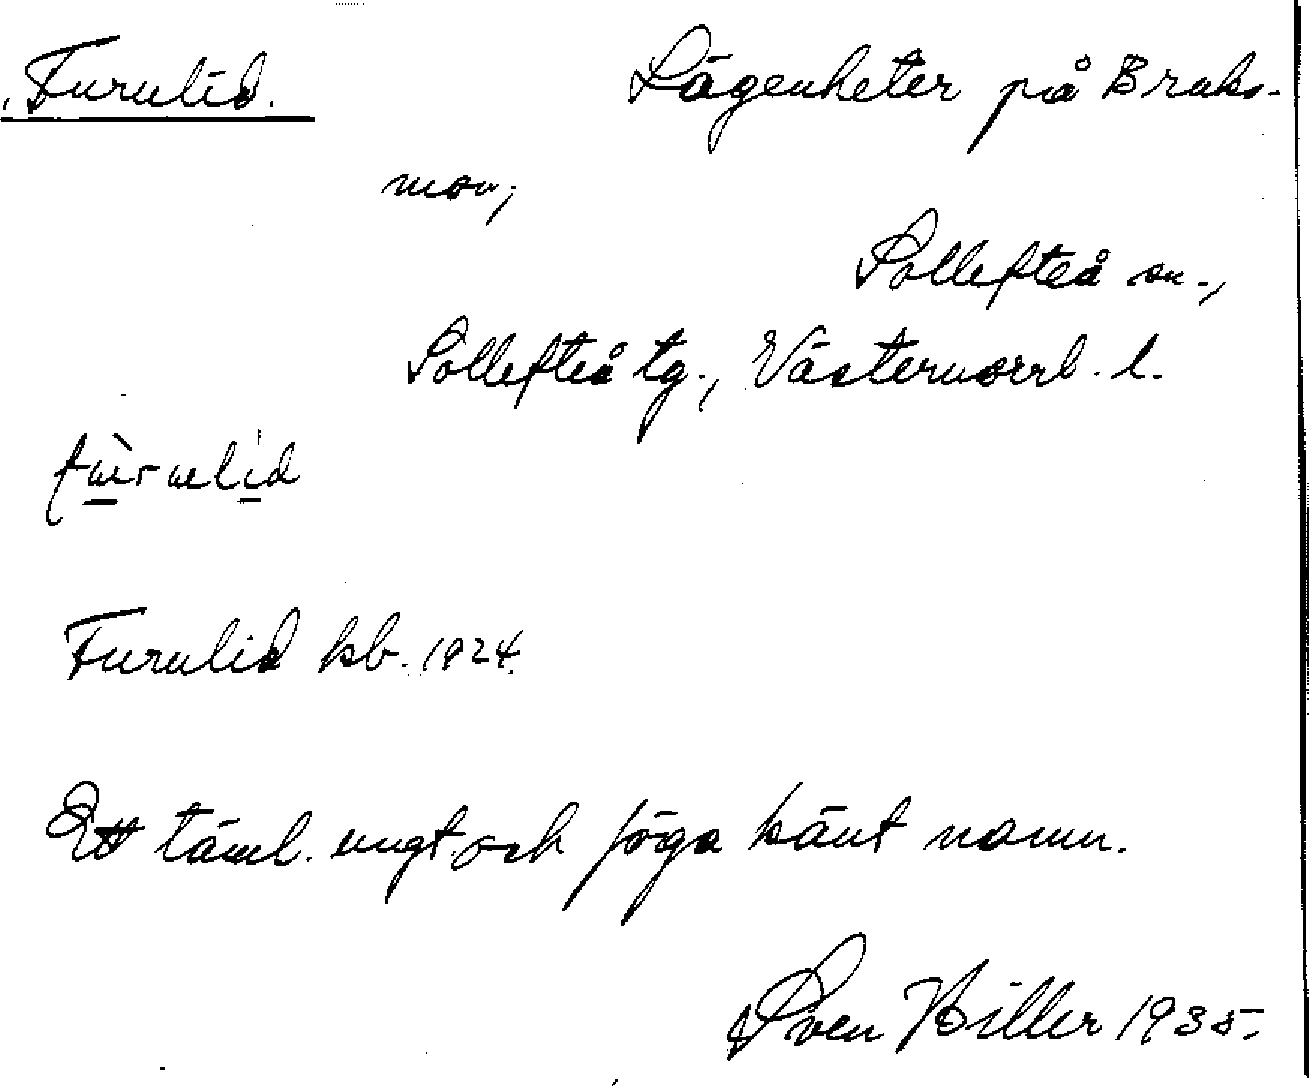 Furulid. Lägenheter på Braks-
mon,
Sollefteå sn.,
Sollefteå tg., Västernorrl. l.
fùrulid
Furulid kb. 1924.
Ett täml. ungt och föga känt namn.
Sven Biller 1935.